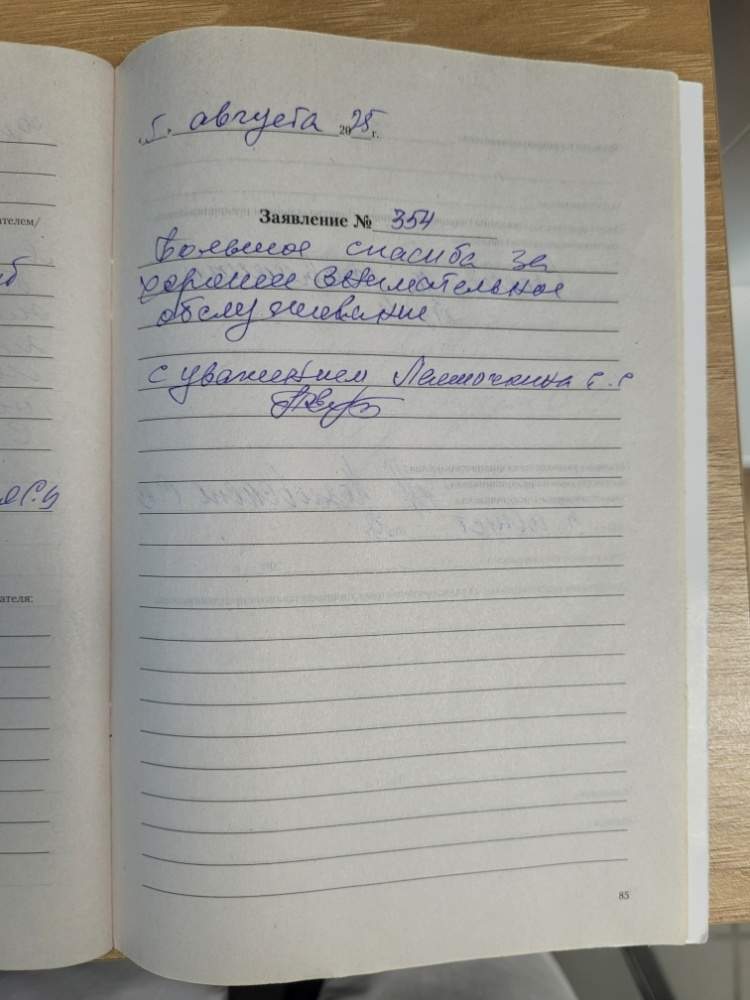 5. августа 2025 г.
Заявление № 354
Большое спасиба за
хорошее внимательное
обслуживание
с уважением
ателем/
ателя:
85